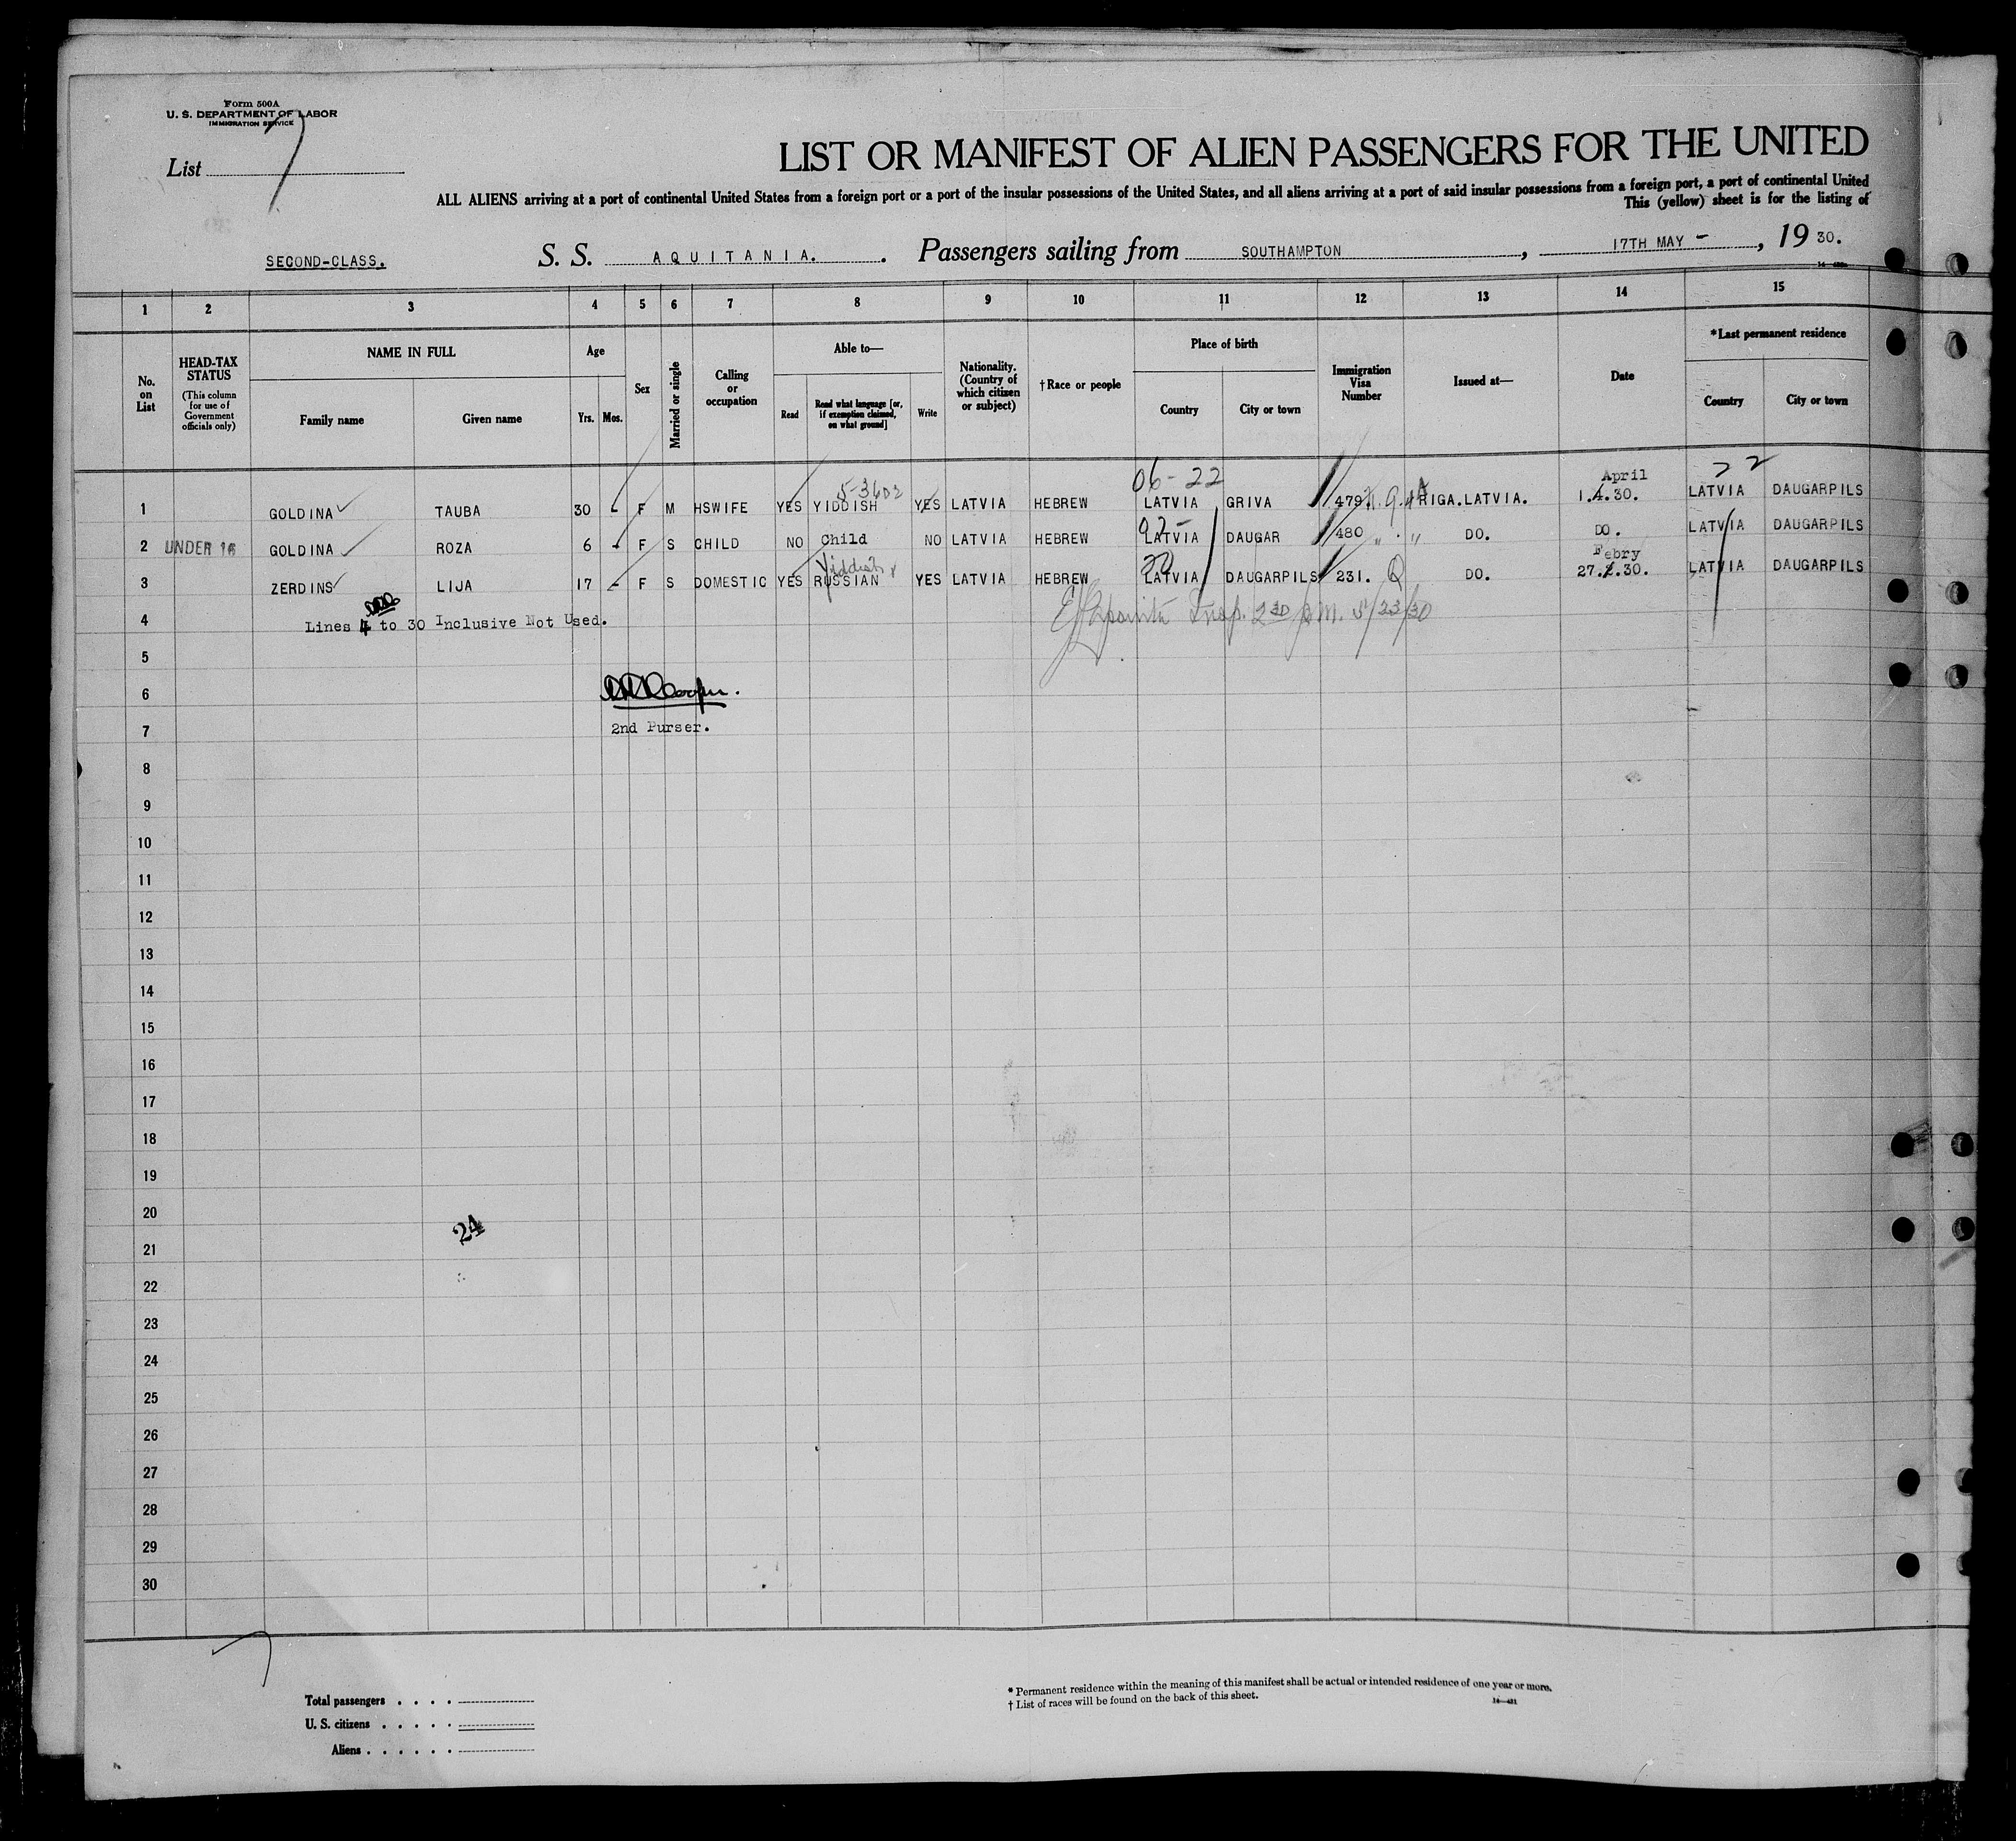 Form 500A
U. S. DEPARTMENT OF LABOR
IMMIGRATION SERVICE
List 7
LIST OR MANIFEST OF ALIEN PASSENGERS FOR THE UNITED
ALL ALIENS arriving at a port of continental United States from a foreign port or a port of the insular possessions of the United States, and all aliens arriving at a port of said insular possessions from a foreign port, a port of continental United
This (yellow) sheet is for the listing of
SECOND-CLASS. S. S. AQUITANIA. Passengers sailing from SOUTHAMPTON, 17TH MAY -, 19 30.
1 2 3 4 5 6 7 8 9 10 11 12 13 14 15
No. on List
HEAD-TAX STATUS (This column for use of Government officials only)
NAME IN FULL
Family name Given name
Age
Yrs. Mos.
Sex
Married or single
Calling or occupation
Able to—
Read
Read what language [or, if exemption claimed, on what ground]
Write
Nationality. (Country of which citizen or subject)
† Race or people
Place of birth
Country City or town
Immigration Visa Number
Issued at—
Date
*Last permanent residence
Country City or town
06-22 22
5-3602 April
1 GOLDINA TAUBA 30 - F M HSWIFE YES YIDDISH YES LATVIA HEBREW LATVIA GRIVA 479 RIGA.LATVIA. 1.4.30. LATVIA DAUGARPILS
2 UNDER 16 GOLDINA ROZA 6 - F S CHILD NO Child NO LATVIA HEBREW LATVIA DAUGAR 480 " " DO. DO. LATVIA DAUGARPILS
Yiddish & Febry
3 ZERDINS LIJA 17 - F S DOMESTIC YES RUSSIAN YES LATVIA HEBREW LATVIA DAUGARPILS 231. Q DO. 27.2.30. LATVIA DAUGARPILS
4 Lines 4 to 30 Inclusive Not Used. Insp. 2ND 5/23/30
5
6
7 2nd Purser.
8
9
10
11
12
13
14
15
16
17
18
19
20
24
21
22
23
24
25
26
27
28
29
30
Total passengers . . . .
U. S. citizens . . . . .
Aliens . . . . . .
* Permanent residence within the meaning of this manifest shall be actual or intended residence of one year or more.
† List of races will be found on the back of this sheet.